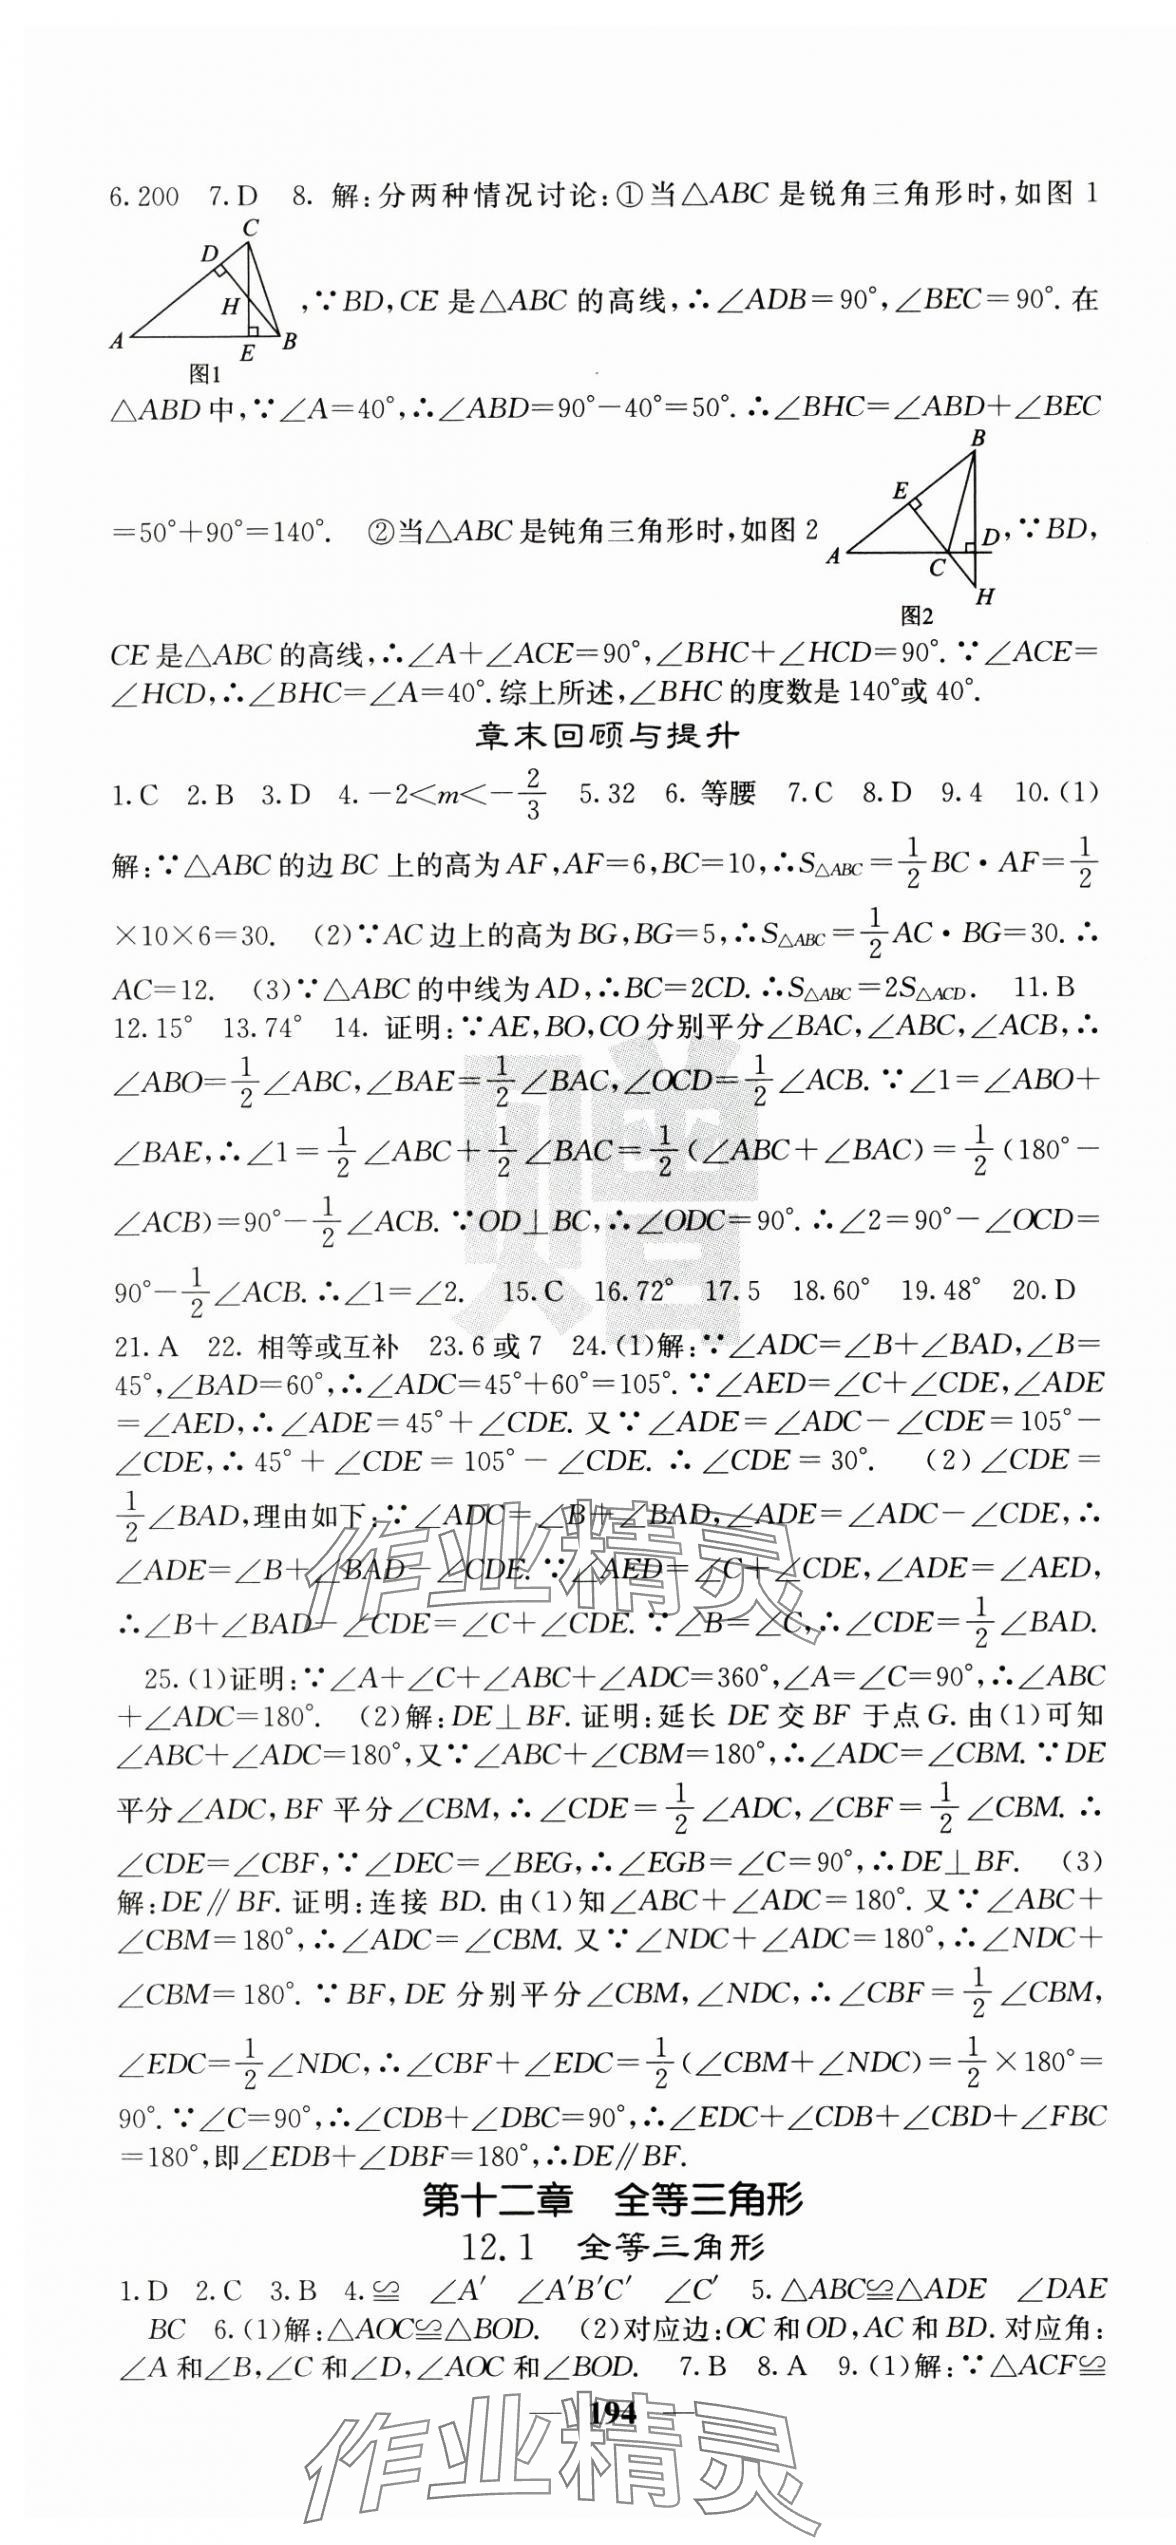 6.200 7.D 8. 解:分两种情况讨论:①当△ABC 是锐角三角形时,如图 1
C
D
H
A
E
B
图1
,∵BD,CE 是△ABC 的高线,∴∠ADB=90°,∠BEC=90°. 在
△ABD 中,∵∠A=40°,∴∠ABD=90°-40°=50°. ∴∠BHC=∠ABD+∠BEC
=50°+90°=140°. ②当△ABC 是钝角三角形时,如图 2
B
E
A
C
D
H
图2
,∵BD,
CE 是△ABC 的高线,∴∠A+∠ACE=90°,∠BHC+∠HCD=90°. ∵∠ACE=
∠HCD,∴∠BHC=∠A=40°. 综上所述,∠BHC 的度数是 140°或 40°.
章末回顾与提升
1.C 2.B 3.D 4.-2<m<-2/3 5.32 6. 等腰 7.C 8.D 9.4 10.(1)
解:∵△ABC 的边 BC 上的高为 AF,AF=6,BC=10,∴S△ABC=1/2BC·AF=1/2
×10×6=30. (2)∵AC 边上的高为 BG,BG=5,∴S△ABC=1/2AC·BG=30. ∴
AC=12. (3)∵△ABC 的中线为 AD,∴BC=2CD. ∴S△ABC=2S△ACD. 11.B
12.15° 13.74° 14. 证明:∵AE,BO,CO 分别平分∠BAC,∠ABC,∠ACB,∴
∠ABO=1/2∠ABC,∠BAE=1/2∠BAC,∠OCD=1/2∠ACB. ∵∠1=∠ABO+
∠BAE,∴∠1=1/2∠ABC+1/2∠BAC=1/2(∠ABC+∠BAC)=1/2(180°-
∠ACB)=90°-1/2∠ACB. ∵OD⊥BC,∴∠ODC=90°. ∴∠2=90°-∠OCD=
90°-1/2∠ACB. ∴∠1=∠2. 15.C 16.72° 17.5 18.60° 19.48° 20.D
21.A 22. 相等或互补 23.6 或 7 24.(1)解:∵∠ADC=∠B+∠BAD,∠B=
45°,∠BAD=60°,∴∠ADC=45°+60°=105°. ∵∠AED=∠C+∠CDE,∠ADE
=∠AED,∴∠ADE=45°+∠CDE. 又∵∠ADE=∠ADC-∠CDE=105°-
∠CDE,∴45°+∠CDE=105°-∠CDE. ∴∠CDE=30°. (2)∠CDE=
1/2∠BAD,理由如下:∵∠ADC=∠B+∠BAD,∠ADE=∠ADC-∠CDE,∴
∠ADE=∠B+∠BAD-∠CDE. ∵∠AED=∠C+∠CDE,∠ADE=∠AED,
∴∠B+∠BAD-∠CDE=∠C+∠CDE. ∵∠B=∠C,∴∠CDE=1/2∠BAD.
25.(1)证明:∵∠A+∠C+∠ABC+∠ADC=360°,∠A=∠C=90°,∴∠ABC
+∠ADC=180°. (2)解:DE⊥BF. 证明:延长 DE 交 BF 于点 G. 由(1)可知
∠ABC+∠ADC=180°,又∵∠ABC+∠CBM=180°,∴∠ADC=∠CBM. ∵DE
平分∠ADC,BF 平分∠CBM,∴∠CDE=1/2∠ADC,∠CBF=1/2∠CBM. ∴
∠CDE=∠CBF,∵∠DEC=∠BEG,∴∠EGB=∠C=90°,∴DE⊥BF. (3)
解:DE∥BF. 证明:连接 BD. 由(1)知∠ABC+∠ADC=180°. 又∵∠ABC+
∠CBM=180°,∴∠ADC=∠CBM. 又∵∠NDC+∠ADC=180°,∴∠NDC+
∠CBM=180°. ∵BF,DE 分别平分∠CBM,∠NDC,∴∠CBF=1/2∠CBM,
∠EDC=1/2∠NDC,∴∠CBF+∠EDC=1/2(∠CBM+∠NDC)=1/2×180°=
90°. ∵∠C=90°,∴∠CDB+∠DBC=90°,∴∠EDC+∠CDB+∠CBD+∠FBC
=180°,即∠EDB+∠DBF=180°,∴DE∥BF.
第十二章 全等三角形
12.1 全等三角形
1.D 2.C 3.B 4.≌ ∠A′ ∠A′B′C′ ∠C′ 5.△ABC≌△ADE ∠DAE
BC 6.(1)解:△AOC≌△BOD. (2)对应边:OC 和 OD,AC 和 BD. 对应角:
∠A 和∠B,∠C 和∠D,∠AOC 和∠BOD. 7.B 8.A 9.(1)解:∵△ACF≌
— 194 —
赠
作业精灵
作业精灵